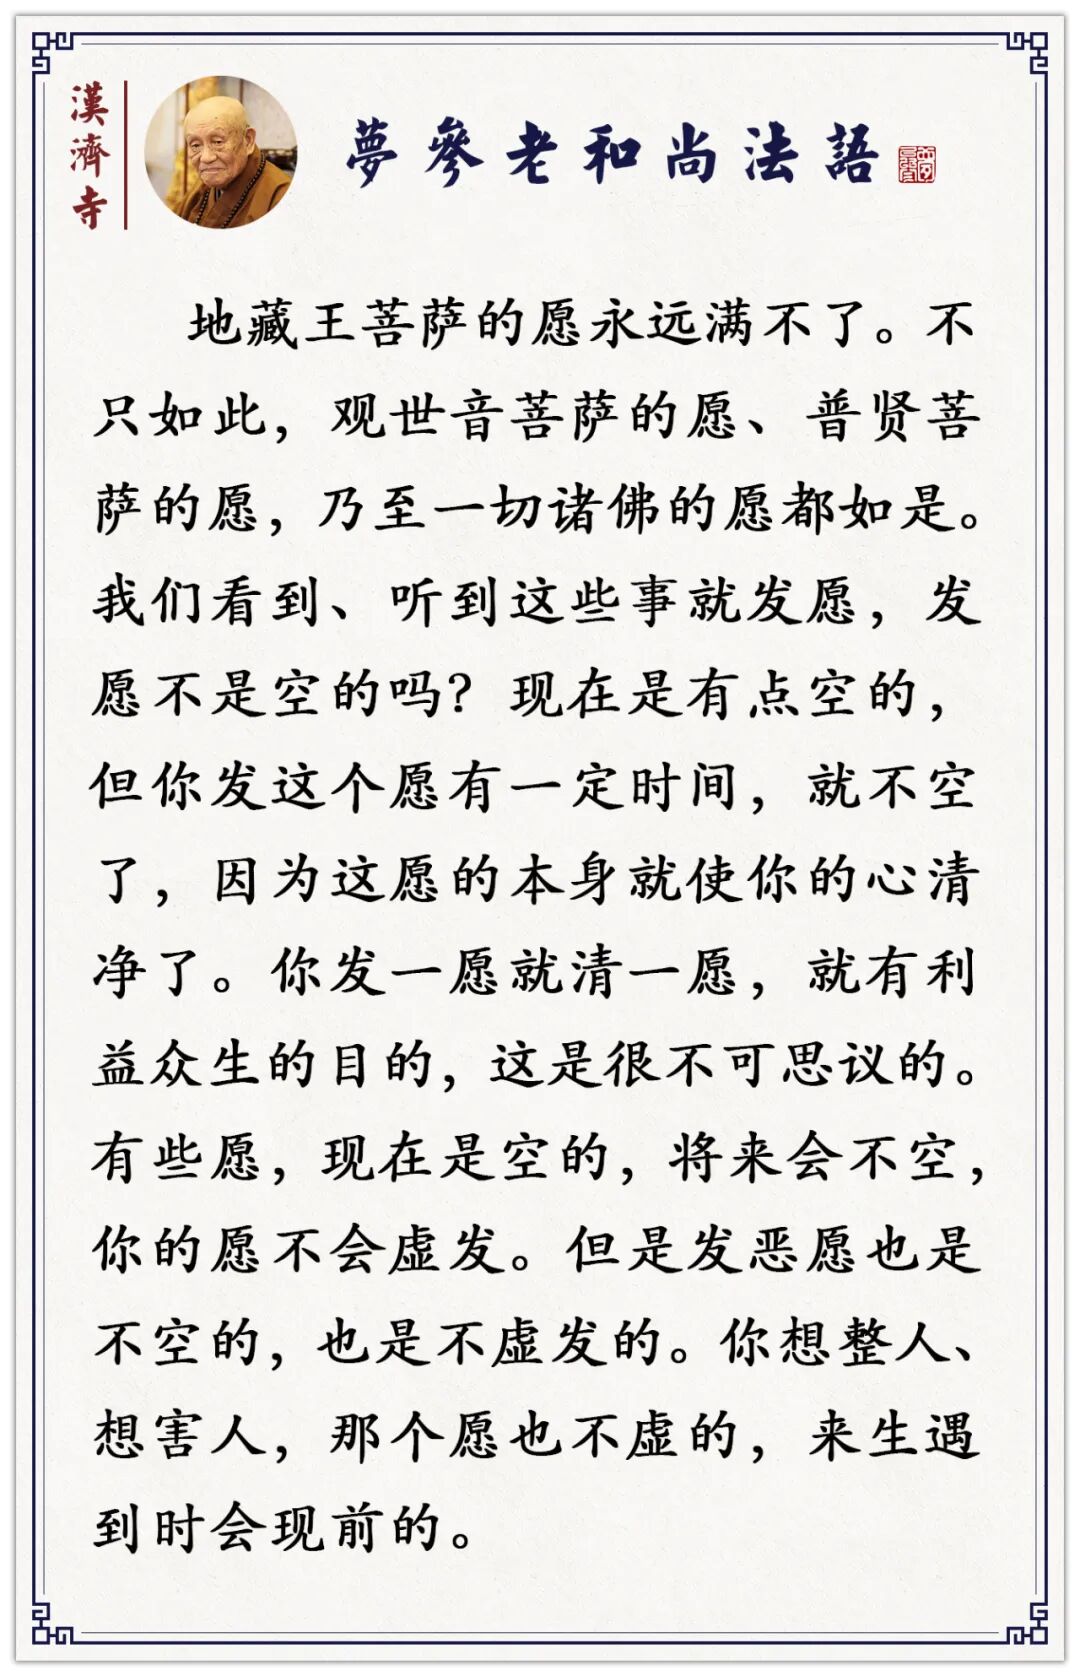 漢濟寺
夢參老和尚法語
地藏王菩萨的愿永远满不了。不
只如此，观世音菩萨的愿、普贤菩
萨的愿，乃至一切诸佛的愿都如是。
我们看到、听到这些事就发愿，发
愿不是空的吗？现在是有点空的，
但你发这个愿有一定时间，就不空
了，因为这愿的本身就使你的心清
净了。你发一愿就清一愿，就有利
益众生的目的，这是很不可思议的。
有些愿，现在是空的，将来会不空，
你的愿不会虚发。但是发恶愿也是
不空的，也是不虚发的。你想整人、
想害人，那个愿也不虚的，来生遇
到时会现前的。